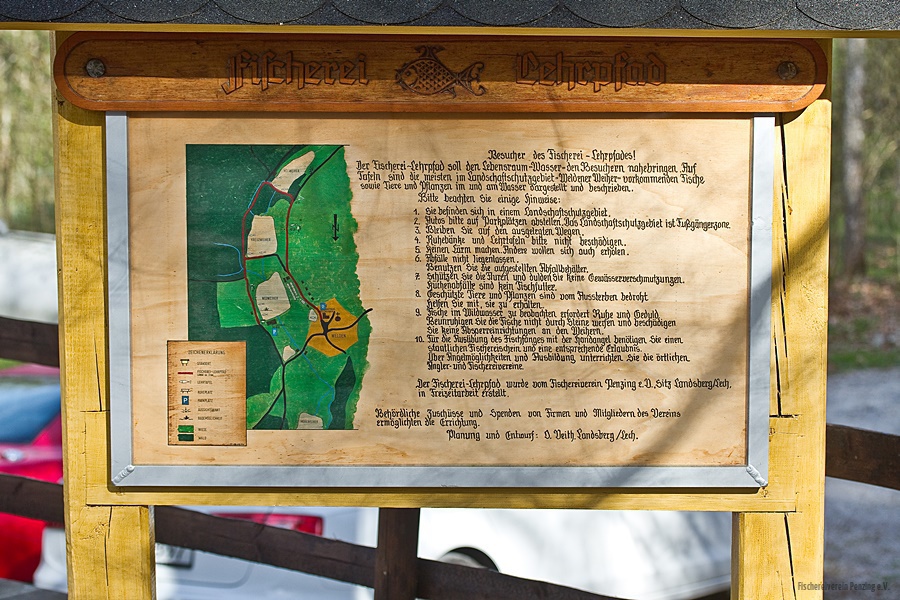 Fischerei Lehrpfad
Besucher des Fischerei-Lehrpfades!
Der Fischerei-Lehrpfad soll den Lebensraum-Wasser-den Besuchern nahebringen. Auf
Tafeln sind die meisten im Landschaftsschutzgebiet-Weldener Weiher-vorkommenden Fische
sowie Tiere und Pflanzen im und am Wasser dargestellt und beschrieben.
Bitte beachten Sie einige Hinweise:
1. Sie befinden sich in einem Landschaftschutzgebiet.
2. Autos bitte auf Parkplätzen abstellen. Das Landschaftschutzgebiet ist Fußgängerzone.
3. Bleiben Sie auf den ausgetreten Wegen.
4. Ruhebänke und Lehrtafeln bitte nicht beschädigen.
5. Keinen Lärm machen. Andere wollen sich auch erholen.
6. Abfälle nicht liegenlassen.
Benutzen Sie die aufgestellten Abfallbehälter.
7. Schützen Sie die Fluren und dulden Sie keine Gewässerverschmutzungen.
Küchenabfälle sind kein Fischfutter.
8. Geschützte Tiere und Pflanzen sind vom Aussterben bedroht
Helfen Sie mit, sie zu erhalten.
9. Fische im Wildwasser zu beobachten erfordert Ruhe und Geduld.
Beunruhigen Sie die Fische nicht durch Steine werfen und beschädigen
Sie keine Absperreinrichtungen an den Weihern.
10. Für die Ausübung des Fischfanges mit der Handangel benötigen Sie einen
staatlichen Fischereischein und eine entsprechende Erlaubnis.
Über Angelmöglichkeiten und Ausbildung unterrichten Sie die örtlichen
Angler-und Fischereivereine.
Der Fischerei-Lehrpfad wurde vom Fischereiverein Penzing e.V., Sitz Landsberg/Lech,
in Freizeitarbeit erstellt.
Behördliche Zuschüsse und Spenden von Firmen und Mitgliedern des Vereins
ermöglichten die Errichtung.
Planung und Entwurf: O. Veith, Landsberg/Lech.
ZEICHENERKLÄRUNG
STANDORT
FISCHEREI-LEHRPFAD
LEHRTAFEL
RUHEPLATZ
P PARKPLATZ
AUSSICHTSPUNKT
BADEMÖGLICHKEIT
WIESE
WALD
Fischereiverein Penzing e.V.